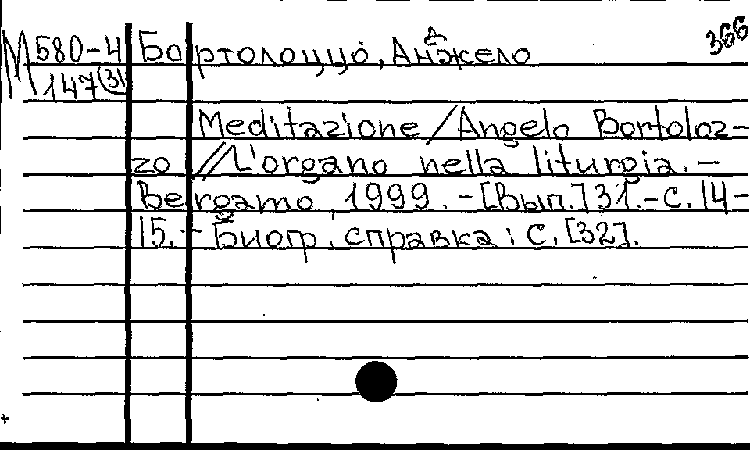 366
М 580-4 Бортолоццо, Анджело
147(31)
Meditazione / Angelo Bortoloz-
zo // L'organo nella liturgia. -
Bergamo, 1999. - [Вып.] 31. - С. 14-
15. - Биогр. справка: С. [32].